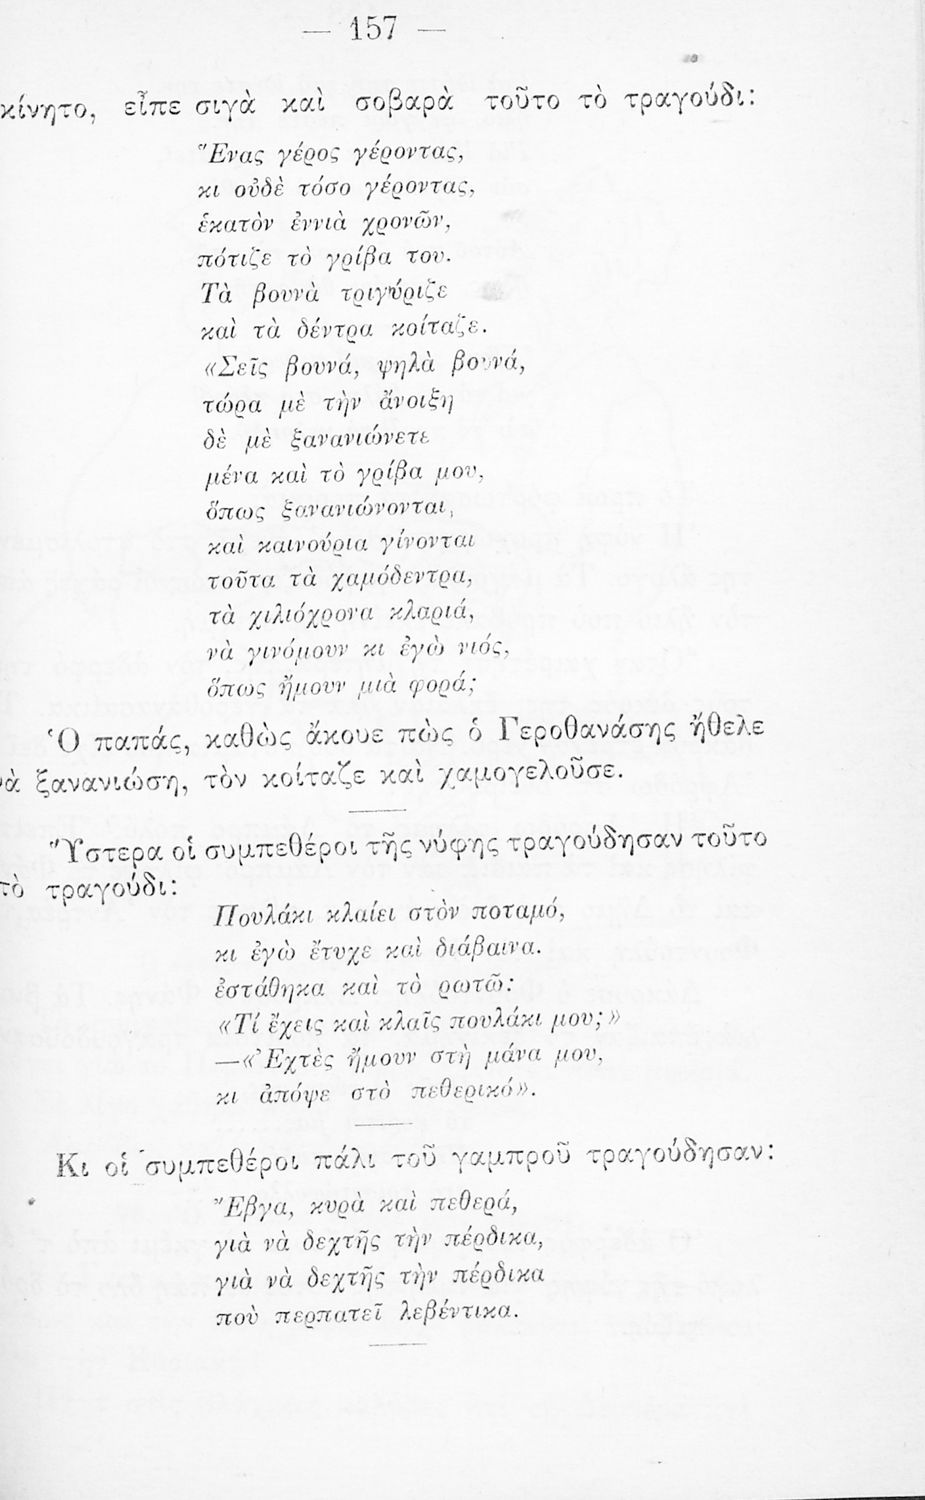 — 157 —
κίνητο, εἶπε σιγὰ καὶ σοβαρὰ τοῦτο τὸ τραγούδι:
Ἕνας γέρος γέροντας,
κι οὐδὲ τόσο γέροντας,
ἑκατὸν ἐννιὰ χρονῶν,
πότιζε τὸ γρίβα του.
Τὰ βουνὰ τριγύριζε
καὶ τὰ δέντρα κοίταζε.
«Σεῖς βουνά, ψηλὰ βουνά,
τώρα μὲ τὴν ἄνοιξη
δὲ μὲ ξανανιώνετε
μένα καὶ τὸ γρίβα μου,
ὅπως ξανανιώνονται,
καὶ καινούρια γίνονται
τοῦτα τὰ χαμόδεντρα,
τὰ χιλιόχρονα κλαριά,
νὰ γινόμουν κι ἐγὼ νιός,
ὅπως ἤμουν μιὰ φορά;
Ὁ παπάς, καθὼς ἄκουε πὼς ὁ Γεροθανάσης ἤθελε
νὰ ξανανιώση, τὸν κοίταζε καὶ χαμογελοῦσε.
Ὕστερα οἱ συμπεθέροι τῆς νύφης τραγούδησαν τοῦτο
τὸ τραγούδι:
Πουλάκι κλαίει στὸν ποταμό,
κι ἐγὼ ἔτυχε καὶ διάβαινα.
ἐστάθηκα καὶ τὸ ρωτῶ:
«Τί ἔχεις καὶ κλαῖς πουλάκι μου;»
—«Ἐχτὲς ἤμουν στὴ μάνα μου,
κι ἀπόψε στὸ πεθερικό».
Κι οἱ συμπεθέροι πάλι τοῦ γαμπροῦ τραγούδησαν:
Ἔβγα, κυρὰ καὶ πεθερά,
γιὰ νὰ δεχτῆς τὴν πέρδικα,
γιὰ νὰ δεχτῆς τὴν πέρδικα
ποὺ περπατεῖ λεβέντικα.